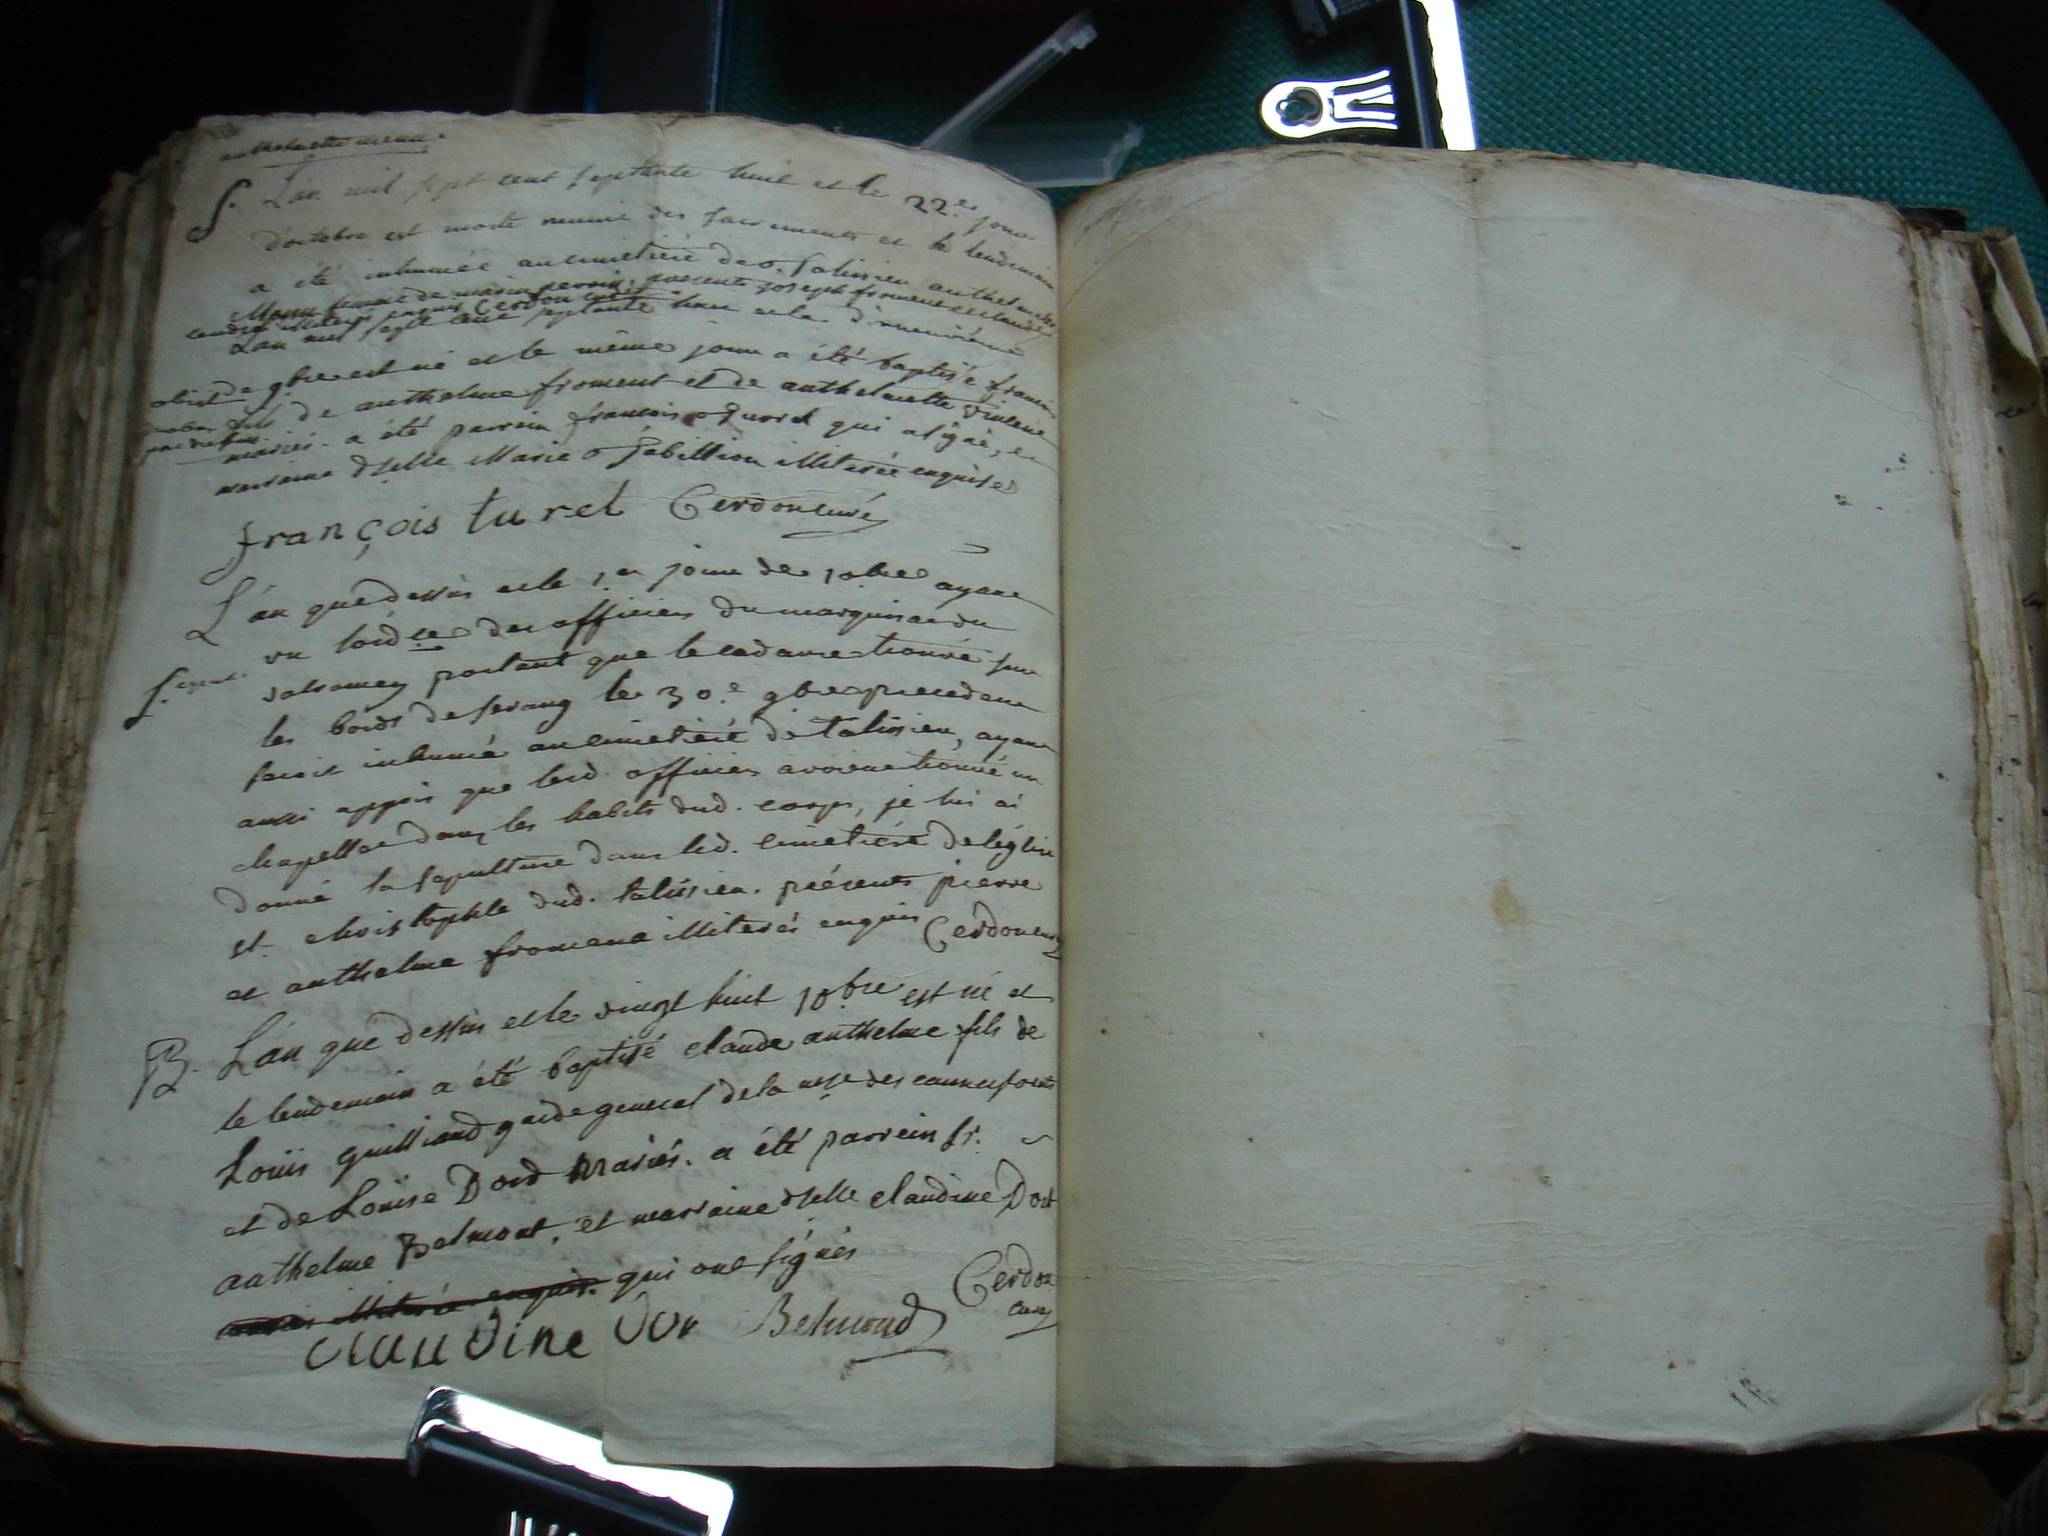 anthelmette menu.
S. L'an mil sept cent septante huit et le 22.e jour
d'octobre est morte munie des sacrements et le lendemain
a été inhumée au cimetiere de talissieu anthelmette
Menu femme de marin perrin, presents joseph froment et claude
enquis Cerdon curé
L'an mil sept cent septante huit et le dixneuvième
de 9bre est né et le même jour a été baptisé françois
fils de anthelme froment et de anthelmette
mariés. a été parrein francois qui a signé, et
marraine dlle Marie illiterée enquise
françois turel Cerdon curé
L'an que dessus et le 1.er jour de 10bre ayant
vu l'ordre des officiers du marquisat du
valromey portant que le cadavre trouvé sur
S.
les bords de serang le 30.e 9bre precedant
seroit inhumé au cimetiere de talissieu, ayant
aussi appris que lesd. officiers avoient trouvé un
chapellet dans les habits dud. corps, je lui ai
donné la sepulture dans led. cimetière de léglise
st. christophle dud. talissieu. présents pierre
et anthelme froment illiterés enquis Cerdon curé
B. L'an que dessus et le vingt huit 10bre est né et
le lendemain a été baptisé claude anthelme fils de
Louis guilliand garde general de la des eaux et forets
et de Louïse Dord mariés. a été parrein sr.
anthelme Belmont, et marraine dlle claudine Dort
illiterée enquise qui ont signés
Claudine Dor Belmond Cerdon
curé